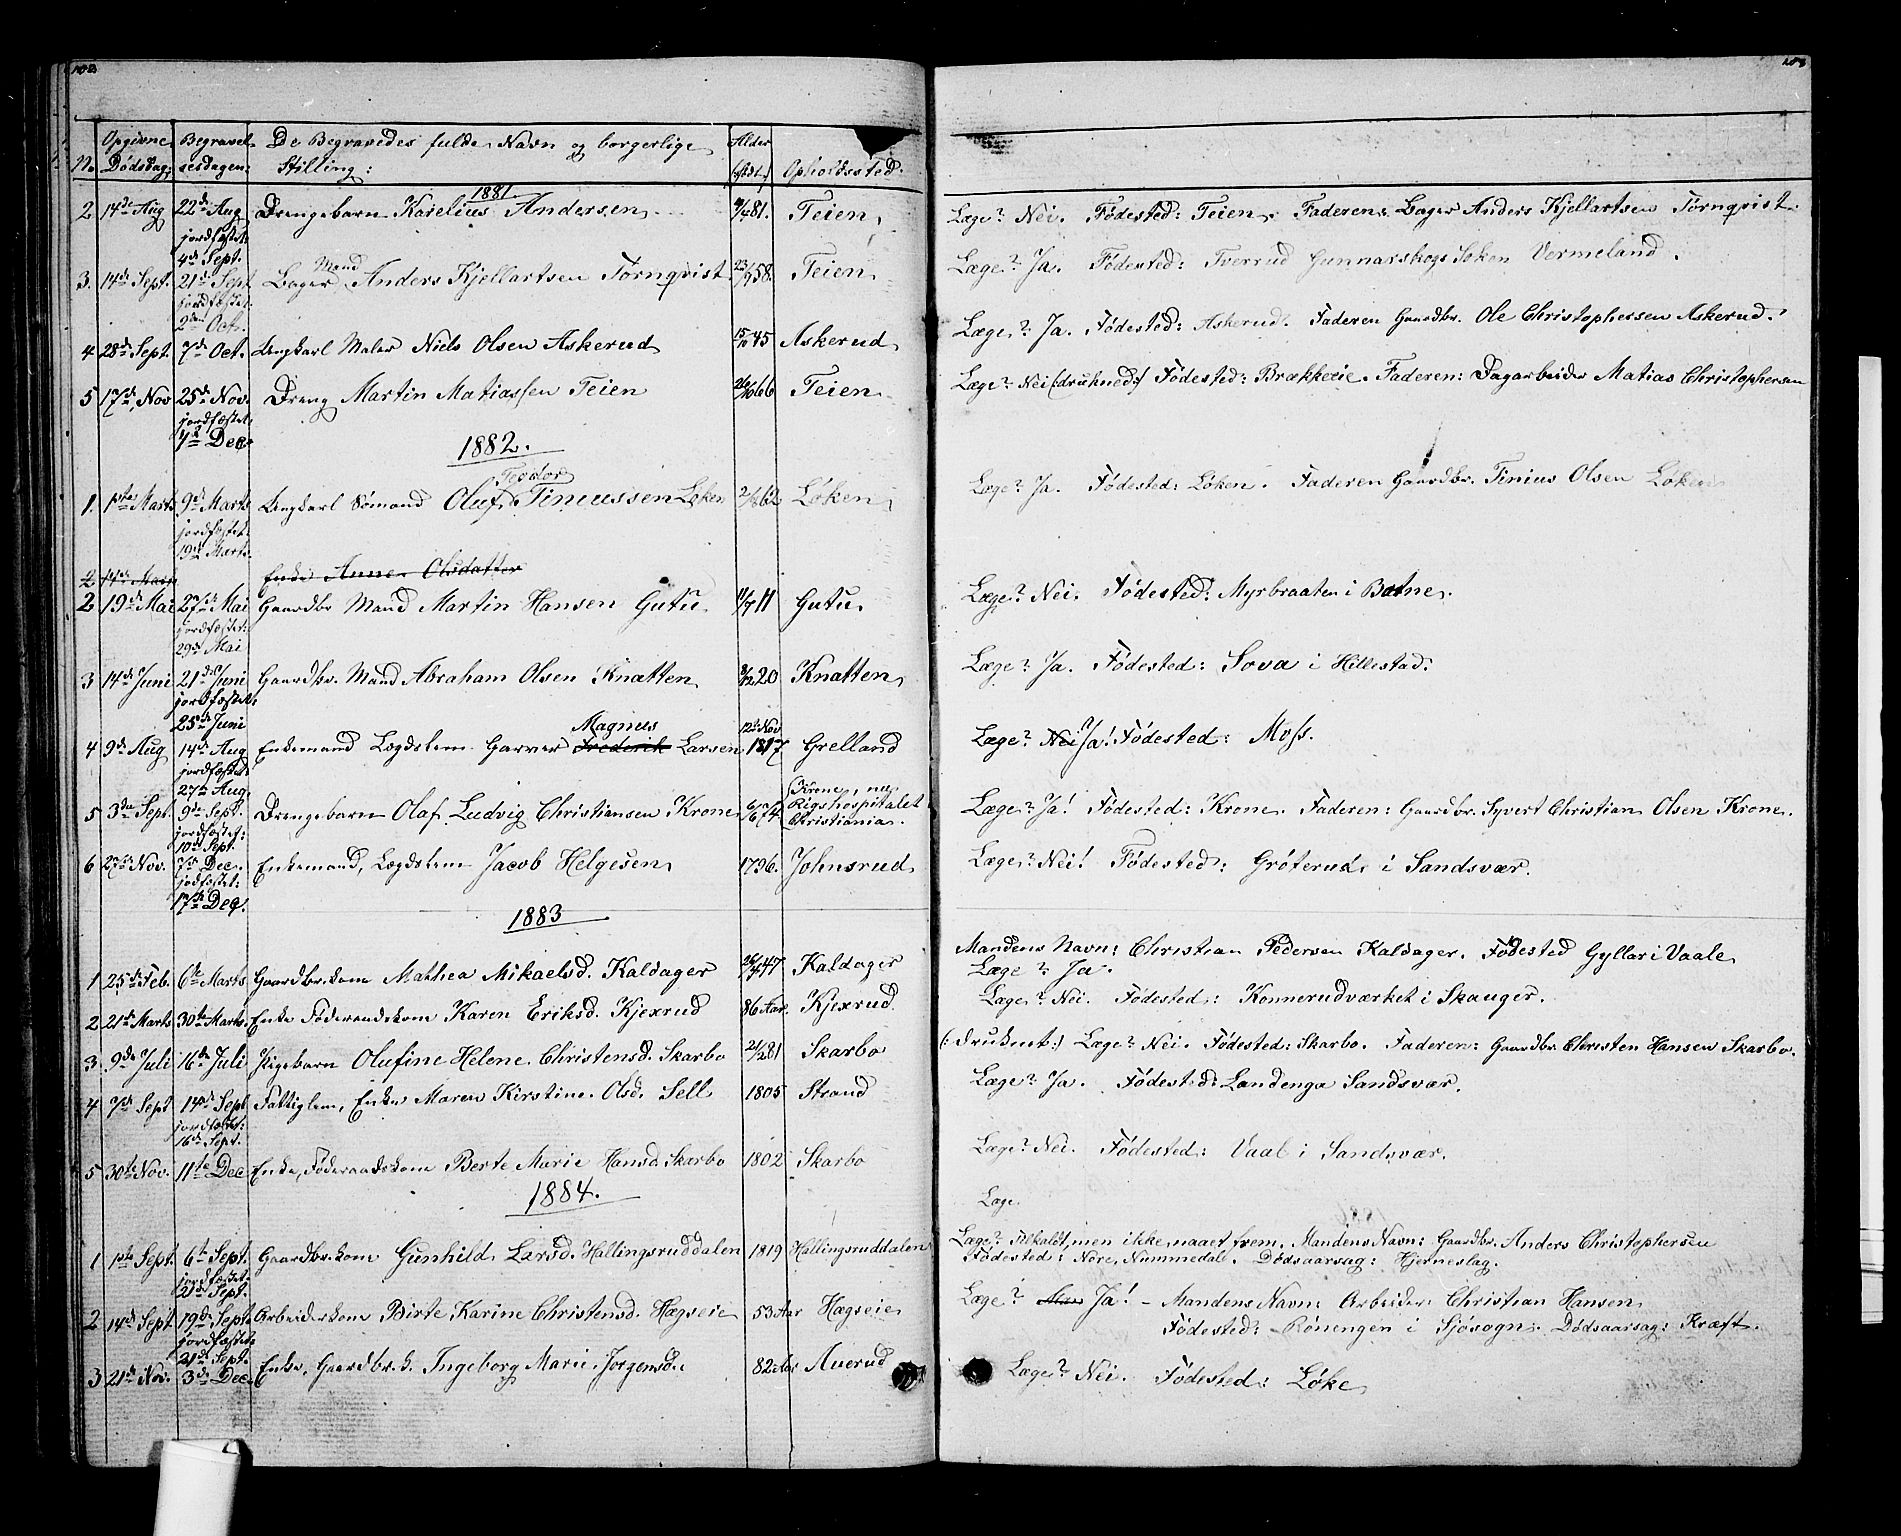 102
No.
Opgivne Dødsdag:
Begravelsesdagen:
De Begravedes fulde Navn og borgerlige Stilling:
Alder (født)
Opholdssted.
1881
2 14de Aug 22de Aug Drengebarn Karelius Andersen 81. Teien Læge? Nei. Fødested: Teien. Faderen: Bager Anders Kjellartsen Törnqvist.
jordfæstet:
4de Sept.
3. 14de Sept. 21de Sept Bager Mand Anders Kjellartsen Törnqvist 58. Teien Læge? Ja. Fødested: Tverrud Gunnarskogs Soken Vermeland.
jordfæstet:
2den Oct.
4 28de Sept. 7de Oct. Ungkarl Maler Niels Olsen Askerud 15/10 45 Askerud Læge? Ja. Fødested: Askerud. Faderen Gaardbr. Ole Christophersen Askerud.
5 17de Nov 25de Nov. Dreng Martin Matiassen Teien 66 Teien Læge? Nei (druknede) Fødested: Brækkeeie. Faderen: Dagarbeider Matias Christophersen
jordfæstet:
4de Dec
1882.
1. 1ste Marts 9de Marts Ungkarl Sømand Oluf Teodor Tinussen Løken 62 Løken Læge? Ja. Fødested: Løken. Faderen Gaardbr. Tinius Olsen Løken
jordfæstet:
19de Marts.
2 Enke Anne Olsdatter
2 19de Mai 27de Mai Gaardbr Mand Martin Hansen Gutu 11/7 11 Gutu Læge? Nei. Fødested: Myrbraaten i Botne.
jordfæstet:
29de Mai
3 14de Juni 21de Juni Gaardbr. Mand Abraham Olsen Knatten 8/12 20 Knatten Læge? Ja. Fødested: Sova i Hillestad.
jordfæstet:
25de Juni
4 9de Aug 14de Aug Enkemand Lægdslem Garver Frederik Magnus Larsen 12te Nov 1817 Grelland Læge? Nei Ja! Fødested: Moss.
jordfæstet
27de Aug
5 3de Sept. 9de Sept. Drengebarn Olaf Ludvig Christiansen Krone 6/6 74. Krone, nu Rigshospitalet Christiania. Læge? Ja! Fødested: Krone. Faderen: Gaardbr. Syvert Christian Olsen Krone.
jordfæstet:
10de Sept.
6 27de Nov. 7de Dec. Enkemand, Lægdslem Jacob Helgesen 1796. Johnsrud Læge? Nei! Fødested: Gröterud i Sandsvær.
jordfæstet:
17de Dec.
1883
1 25de Feb. 6te Marts Gaardbr.kone Mathea Mikaelsd. Kaldager 47 Kaldager Mandens Navn: Christian Pedersen Kaldager. Fødested Gyllar i Vaale
Læge? Ja.
2 21de Marts 30te Marts. Enke Føderaadskone Karen Eriksd. Kjexrud 86 Aar. Kjexrud Læge? Nei. Fødested: Konnerudværket i Skauger.
3. 9de Juli 16de Juli Pigebarn Olufine Helene Christensd. Skarbo 81 Skarbo (: druknet :) Læge? Nei. Fødested: Skarbo. Faderen: Gaardbr. Christen Hansen Skarbo.
4 7de Sept 14de Sept Fattiglem, Enke Maren Kirstine Olsd. Sell 1805 Strand Læge? Ja. Fødested: Landenga Sandsvær.
jordfæstet:
16de Sept.
5 30te Nov. 11te Dec Enke, Føderaadskone Berte Marie Hansd. Skarbo 1802 Skarbo Læge? Nei. Fødested: Vaal i Sandsvær.
1884.
Læge.
1 1ste Sept. 6te Sept. Gaardbr.kone Gunhild Larsd. Hallingsruddalen 1819 Hallingsruddalen Læge? Tilkaldt, men ikke naaet frem. Mandens Navn: Gaardbr. Anders Christophersen
jordfæstet:
21de Sept.
Fødested: Nore, Nummedal. Dødsaarsag: Hjerneslag.
2 14de Sept 19de Sept. Arbeiderkone Birte Karine Christensd. Hægseie 53 Aar Hægseie Læge? Ja! – Mandens Navn: Arbeider Christian Hansen
jordfæstet
21de Sept.
Fødested: Rönengen i Sjösogn. Dødsaarsag: Kræft.
3 21de Nov. 3de Dec. Enke, Gaardbr.k. Ingeborg Marie Jorgensd. 82 Aar Auerud Læge? Nei. Fødested: Løke